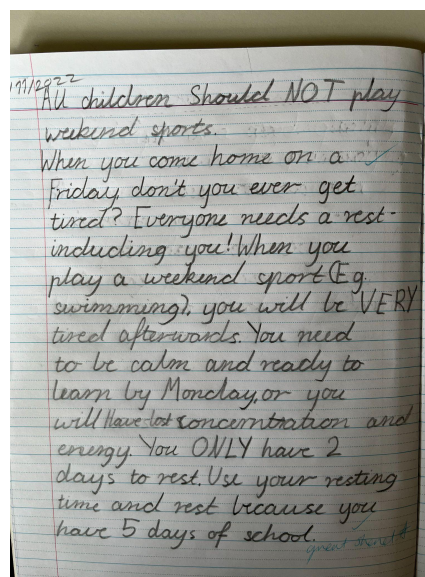 /2022
All children Should NOT play
weekend sports.
When you come home on a
Friday don't you ever get
tired? Everyone needs a rest-
including you! When you
play a weekend sport (Eg.
swimming), you will be VERY
tired afterwards. You need
to be calm and ready to
learn by Monday, or you
will Have lost concerntration and
energy. You ONLY have 2
days to rest. Use your resting
time and rest because you
have 5 days of school.
great